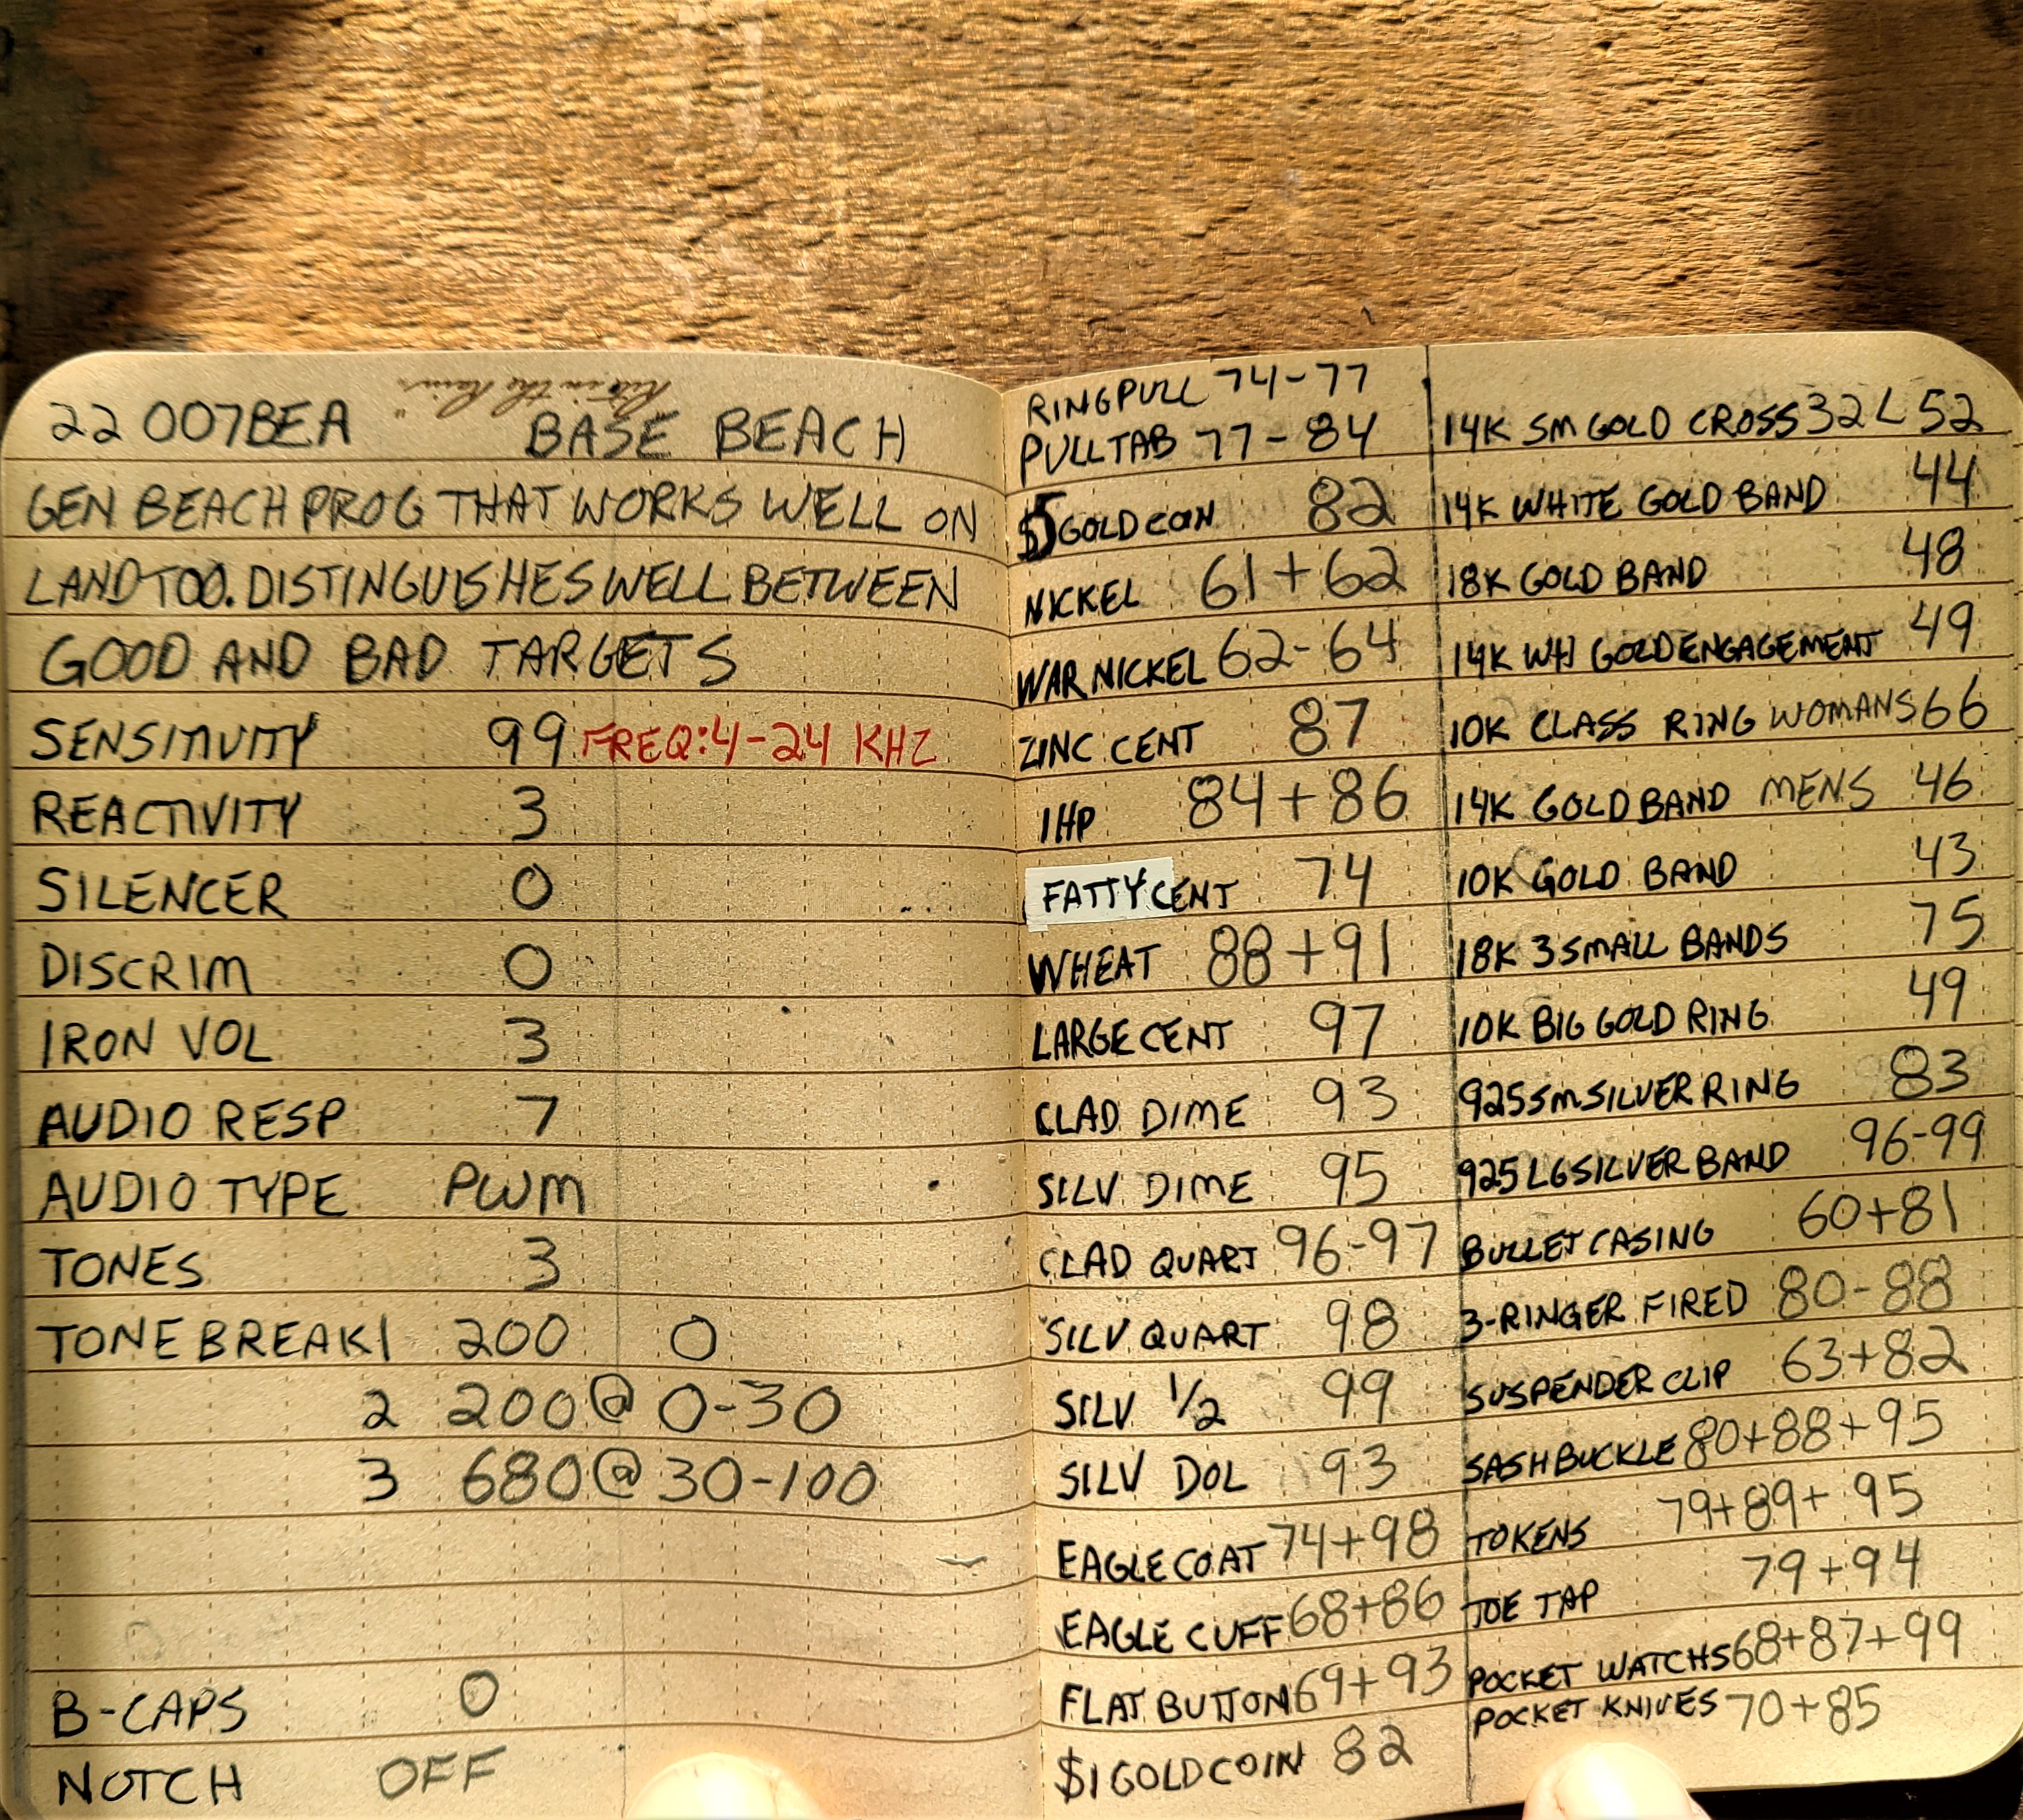 "Rite in the Rain"
22 007BEA BASE BEACH
GEN BEACH PROG THAT WORKS WELL ON
LAND TOO. DISTINGUISHES WELL BETWEEN
GOOD AND BAD TARGETS
SENSITIVITY 99 FREQ: 4-24 KHZ
REACTIVITY 3
SILENCER 0
DISCRIM 0
IRON VOL 3
AUDIO RESP 7
AUDIO TYPE PWM
TONES 3
TONE BREAK 1 200 0
2 200 @ 0-30
3 680 @ 30-100
B-CAPS 0
NOTCH OFF
RINGPULL 74-77
PULLTAB 77-84
$5 GOLD COIN 82
NICKEL 61+62
WAR NICKEL 62-64
ZINC CENT 87
IHP 84+86
FATTY CENT 74
WHEAT 88+91
LARGE CENT 97
CLAD DIME 93
SILV DIME 95
CLAD QUART 96-97
SILV QUART 98
SILV 1/2 99
SILV DOL 93
EAGLE COAT 74+98
EAGLE CUFF 68+86
FLAT BUTTON 69+93
$1 GOLD COIN 82
14K SM GOLD CROSS 32 L 52
14K WHITE GOLD BAND 44
18K GOLD BAND 48
14K WHI GOLD ENGAGEMENT 49
10K CLASS RING WOMANS 66
14K GOLD BAND MENS 46
10K GOLD BAND 43
18K 3 SMALL BANDS 75
10K BIG GOLD RING 49
925 SM SILVER RING 83
925 LG SILVER BAND 96-99
BULLET CASING 60+81
3-RINGER FIRED 80-88
SUSPENDER CLIP 63+82
SASH BUCKLE 80+88+95
TOKENS 79+89+95
TOE TAP 79+94
POCKET WATCHS 68+87+99
POCKET KNIVES 70+85